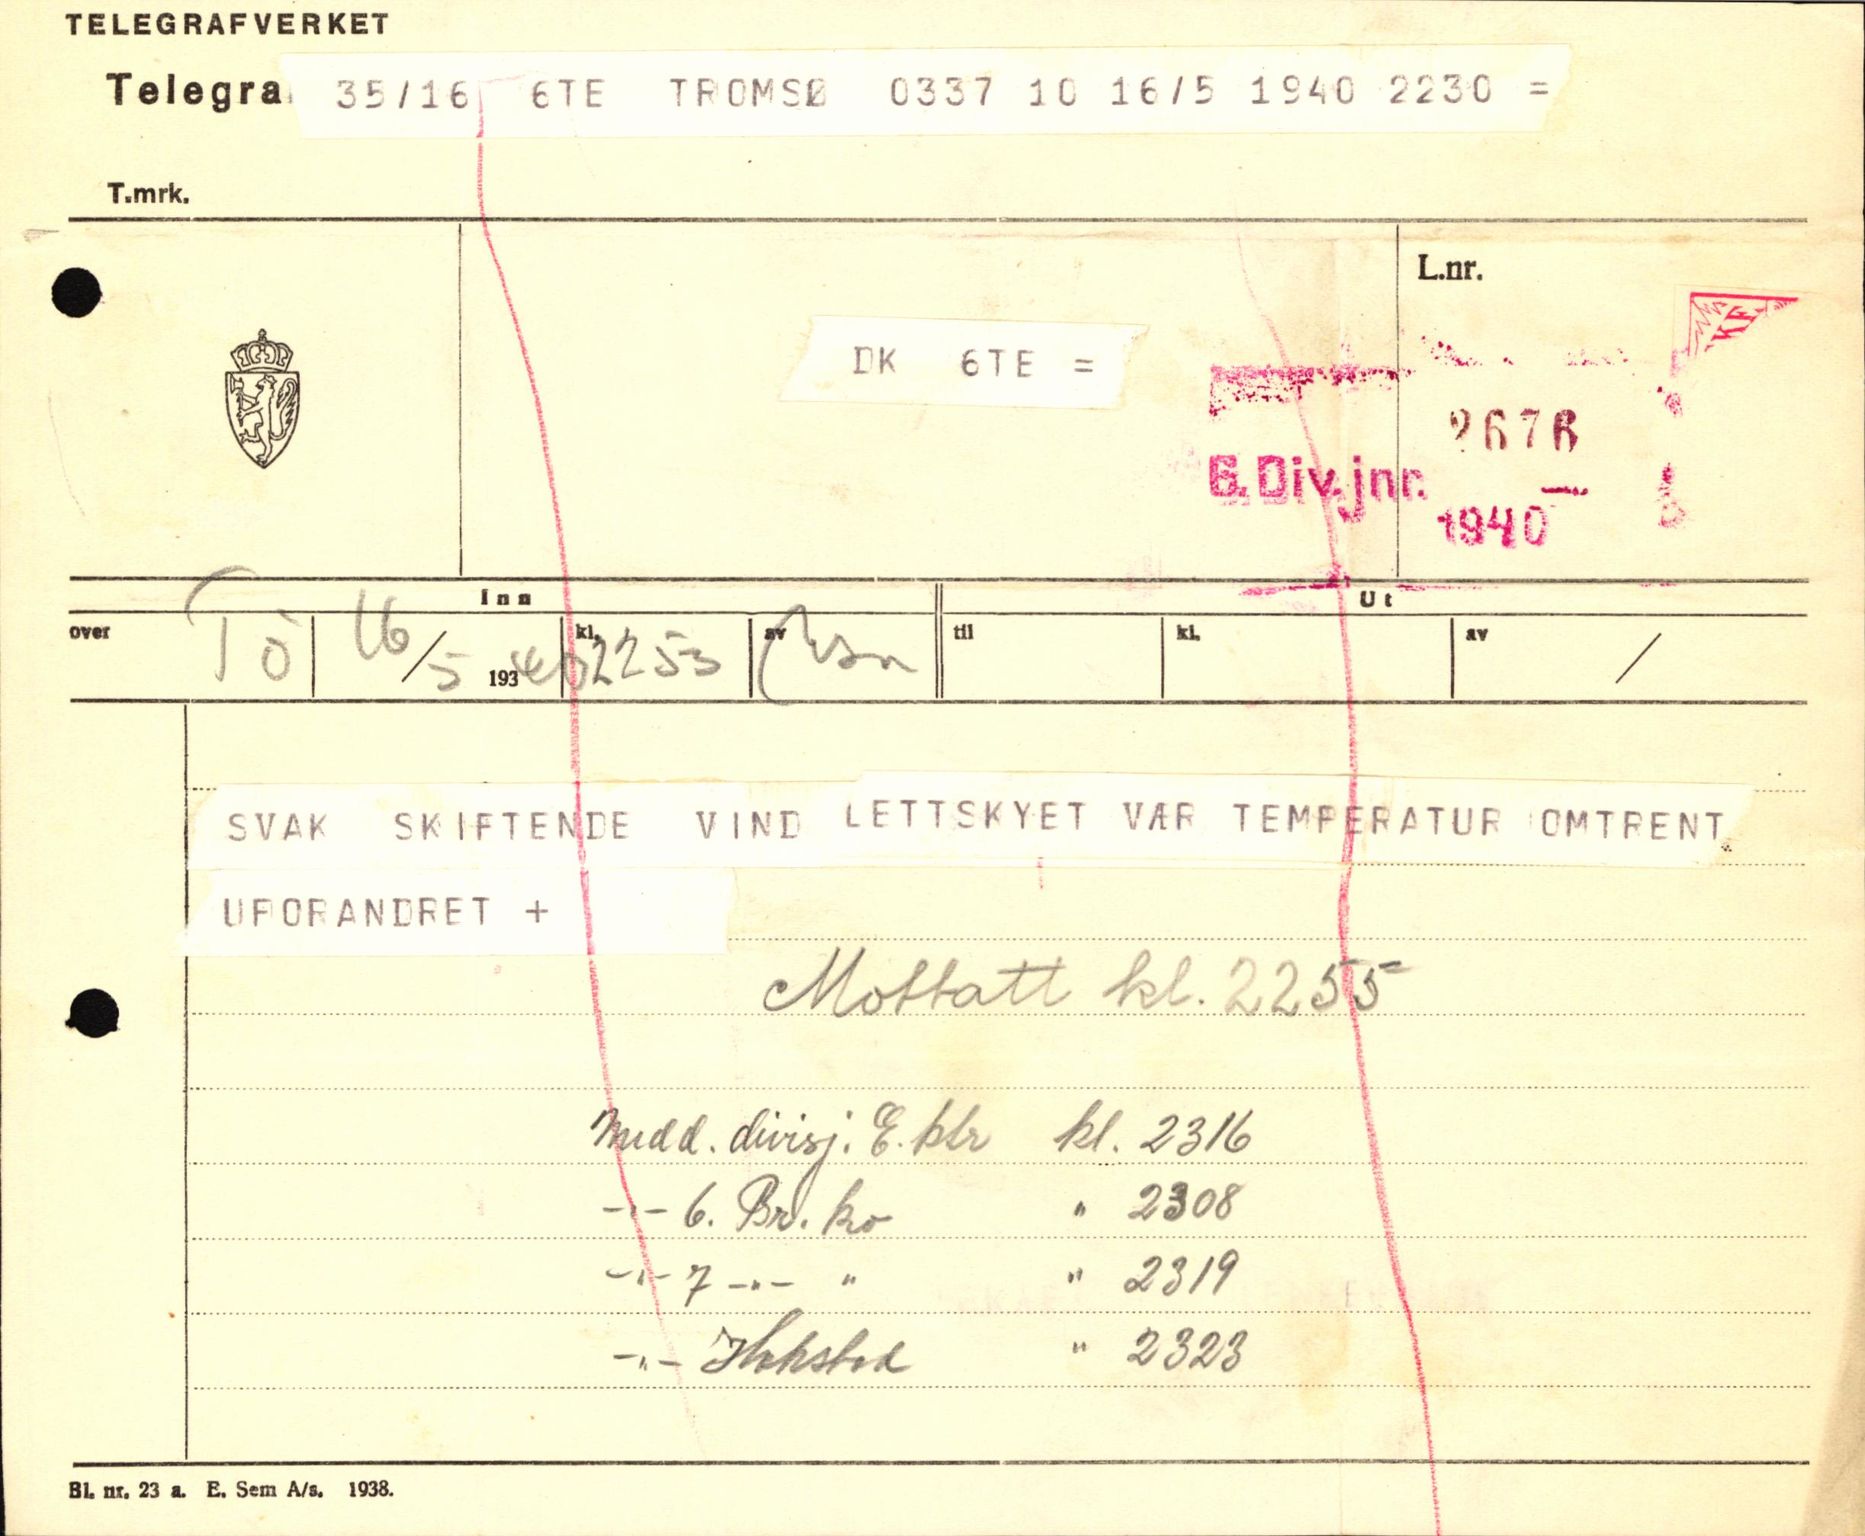 TELEGRAFVERKET
Telegra 35/16 6TE TROMSØ 0337 10 16/5 1940 2230 =
T.mrk.
L.nr.
DK 6TE =
2676
6. Div. jnr.
1940
Inn
Ut
over Tö 16/5 193 40 kl. 2253 av
til kl. av /
SVAK SKIFTENDE VIND LETTSKYET VÆR TEMPERATUR OMTRENT
UFORANDRET +
Mottatt kl. 2255
Medd. divisj. E. ktr kl. 2316
-"- 6. Br. ko " 2308
-"- 7 -"- " " 2319
-"- " 2323
Bl. nr. 23 a. E. Sem A/s. 1938.